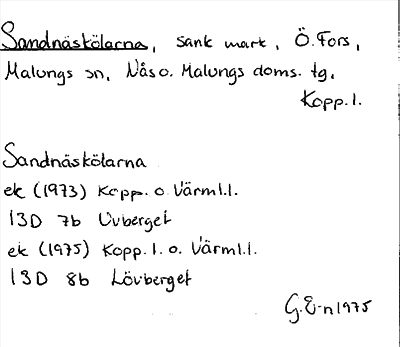 Sandnäskölarna, sank mark, Ö. Fors,
Malungs sn, Nås o. Malungs doms. tg,
Kopp. l.
Sandnäskölarna
ek (1973) Kopp. o Värml. l.
13D 7b Uvberget
ek (1975) Kopp. l. o. Värml. l.
13D 8b Lövberget
G. E-n 1975